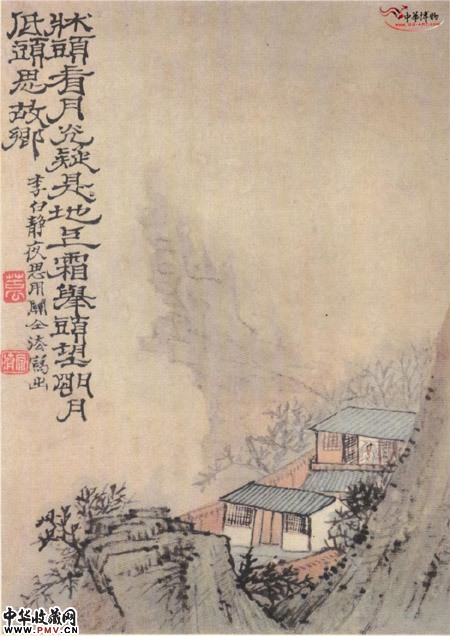 牀頭看月光疑是地上霜舉頭望朙月
低頭思故鄉
李白靜夜思用關仝法寫出
中华博物
中华收藏网
WWW.PMV.CN